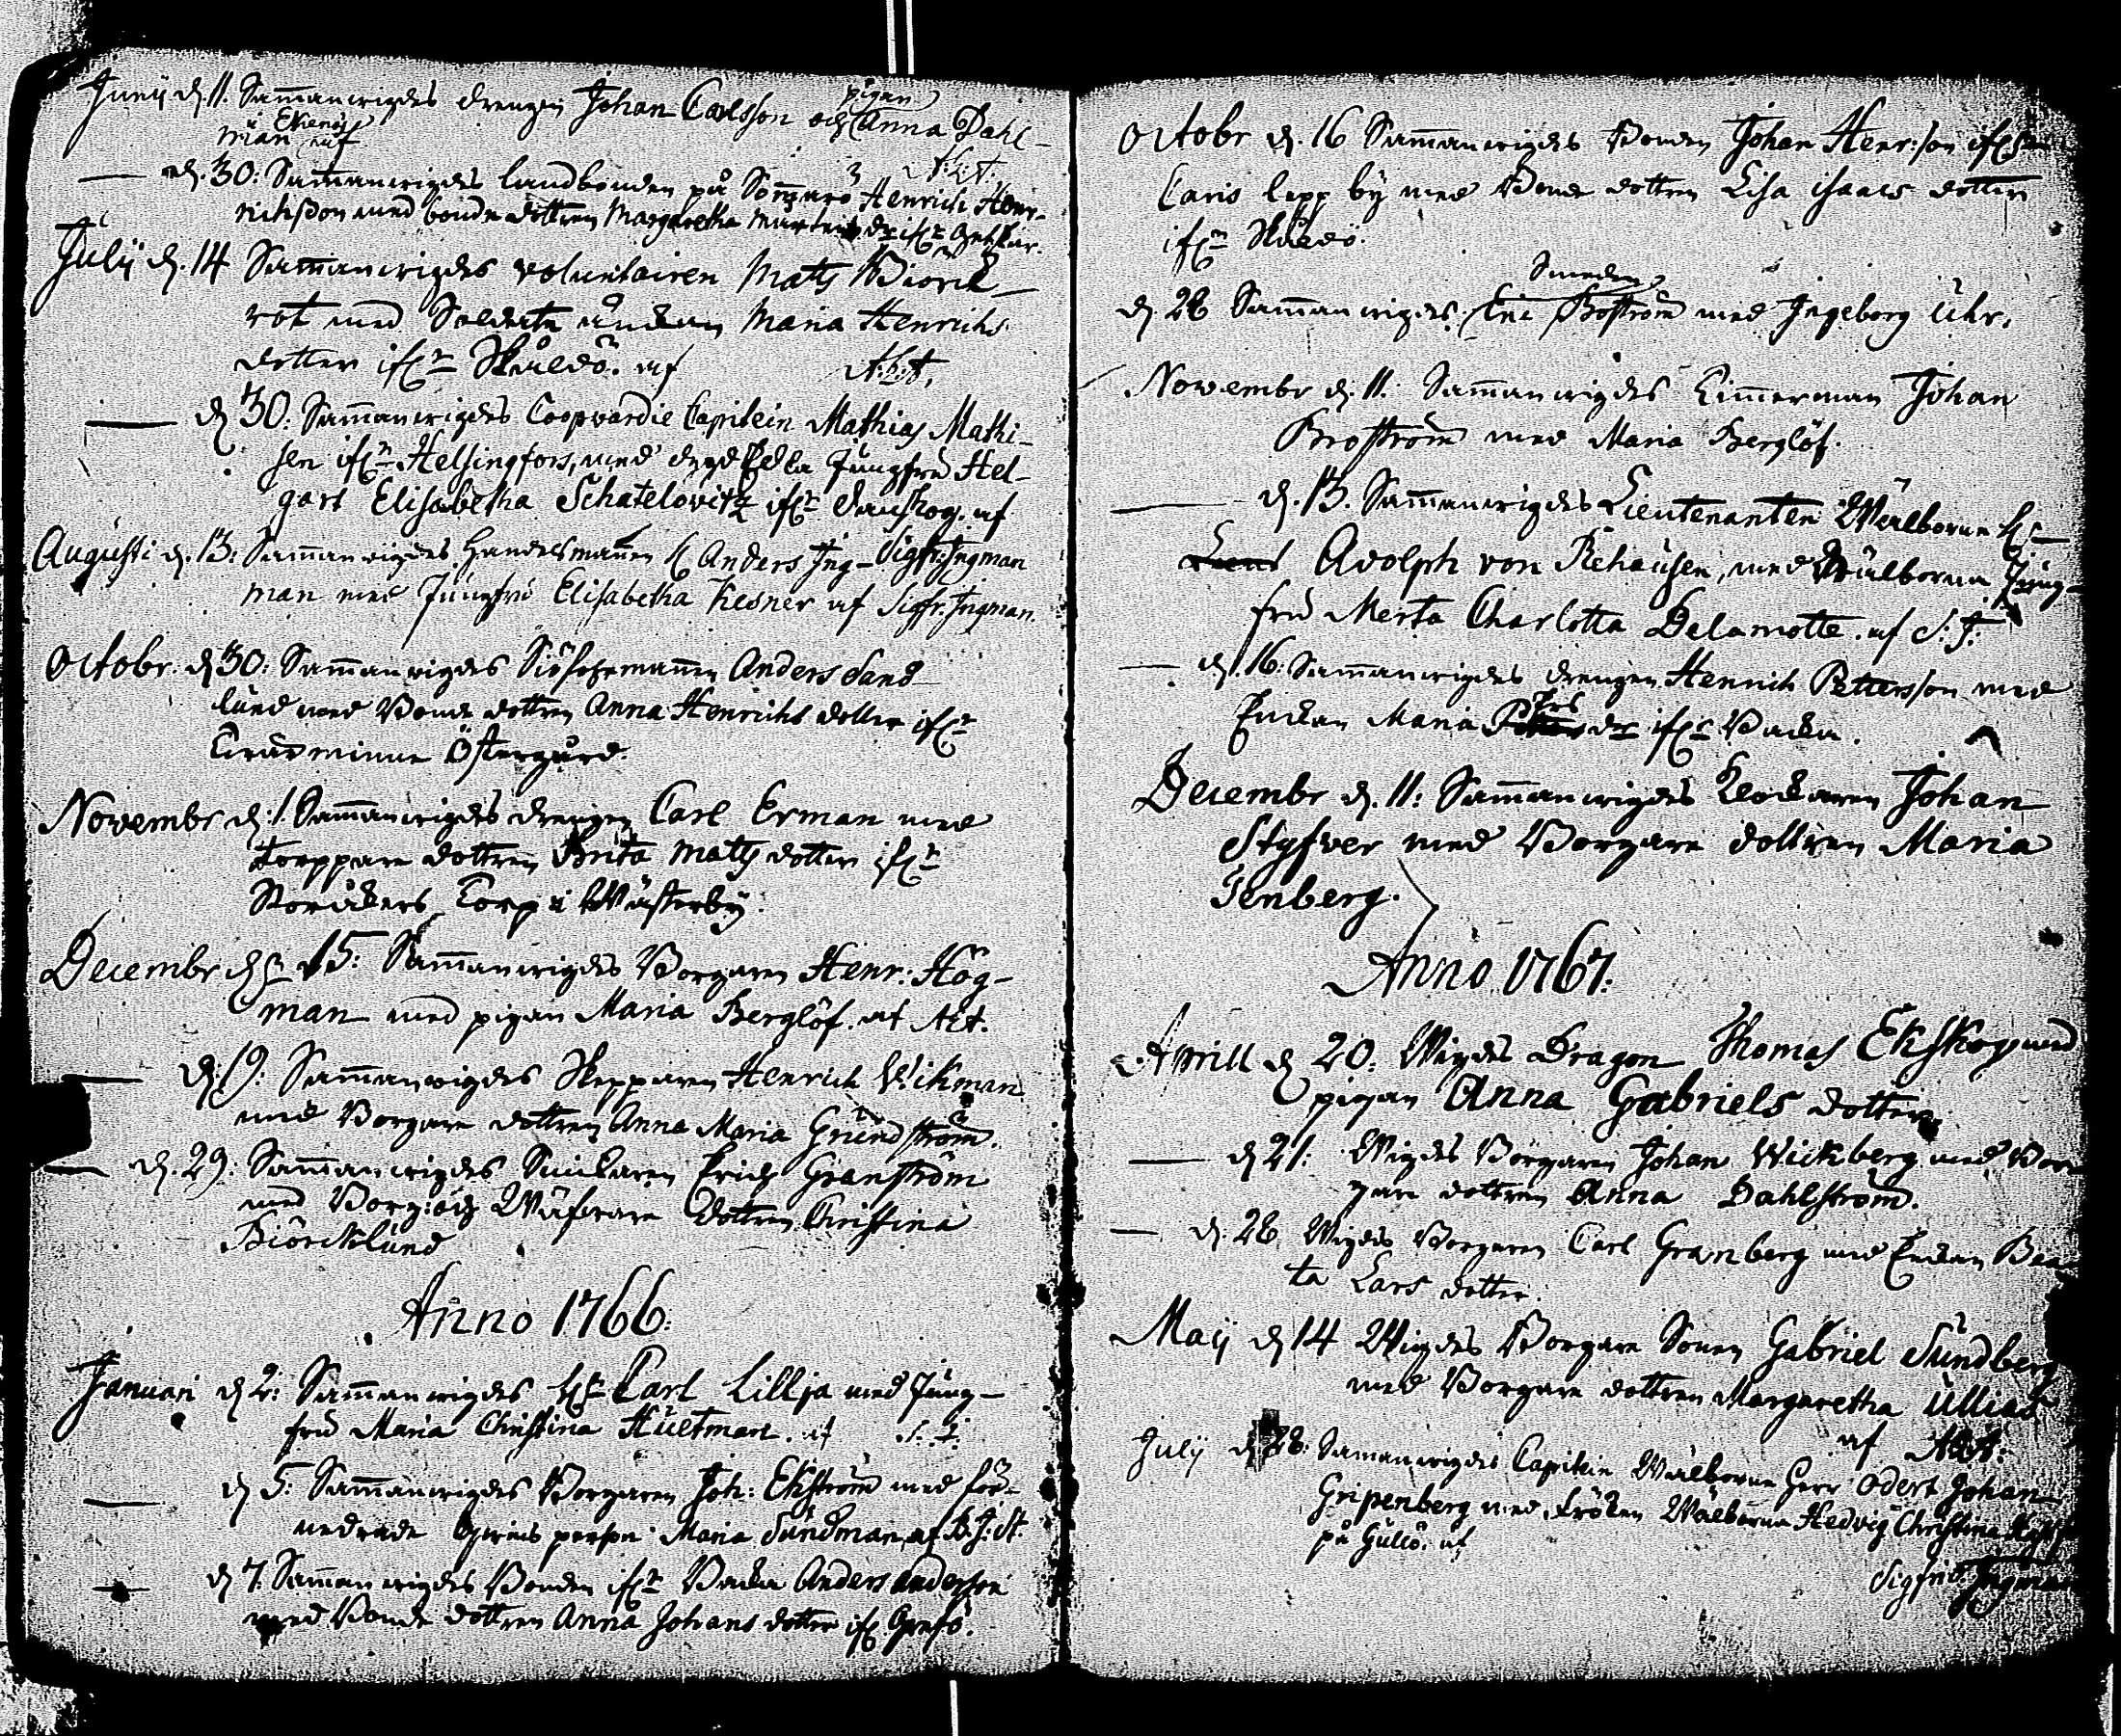 pigan
Junij d. 11. Sammanwigdes drengen Johan Carlsson och Anna Dahl-
Ekenäs
man
d. 30: Sammanwigdes Landbonden på Henrich Hen-
richsson med bonde dottren Margaretha
Julij d. 14 Sammanwigdes voluntairen Matts Biörk-
rot med Soldate änckan Maria Henrichs
dotter ifrn Skåldö. af A:L:A.
d. 30. Sammanwigdes Coopvardie Capitein Mathias Mathi-
sen ifrn Helsingfors, med Jungfru Hel-
gart Elisabetha Schatelovitz ifrn af
Sigfr: Ingman
Augusti d. 13: Sammanwigdes Handelsmannen H Anders Ing-
man med Jungfru Elisabetha Kesner af Sigfr. Ingman.
Octobr. d 30: Sammanwigdes Anders Sand-
lund med Bonde dottren Anna Henrichs dotter ifrn
Östergård.
Novembr d. 1. Sammanwigdes drengen Carl Erman med
torppare dottren Brita Matts dotter ifrn
Torp i Wästerby.
Decembr d. 15: Sammanwigdes Borgaren Henr: Hög-
man med pigan Maria Berglöf. af
d. 19: Sammanwigdes Skepparen Henrich Wikman
med Borgare dottren Anna Maria Grundström.
d. 29: Sammanwigdes Snickaren Erich Granström
med Borg: och dottren Christina
Biörcklund
Anno 1766.
Januari d 2: Sammanwigdes Hr Carl Lillja med Jung-
fru Maria Christina Hultman. af S. I.
d 5: Sammanwigdes Borgaren Joh: Ekström med
Maria Sundman, af
d 7. Sammanwigdes Bonden ifrn Backa Anders Andersson
med Bonde dottren Anna Johans dotter ifrn
Octobr d. 16 Sammanwigdes Bonden Johan Henr:son ifrn
Caris lepp by med Bonde dottren Lisa Isaacs dotter
ifrn Skåldö.
Smeden
d. 28 Sammanwigdes Eric Boström med Ingeborg Uhr.
Novembr d. 11: Sammanwigdes Timerman Johan
Broström med Maria Berglöf.
d. 13. Sammanwigdes Lieutenanten Wälborne Hr
Adolph von Rehausen, med Wälborna Jung-
fru Merta Charlotta Delamotte. af S: I:
d. 16: Sammanwigdes drengen Henrich Pettersson med
Enckan Maria dr ifrn Backa.
Decembr d. 11: Sammanwigdes Klockaren Johan
Styfver med Borgare dottren Maria
Tenberg.
Anno 1767.
Aprill d 20: Wigdes Dragon Thomas Ekskog med
pigan Anna Gabriels dotter
d 21: Wigdes Borgaren Johan Wickberg med Bor-
gare dottren Anna Dahlström.
d. 28 Wigdes Borgaren Carl Granberg med Enckan Bea-
ta Lars dotter.
Maij d 14 Wigdes Borgare Sonen Gabriel Sundberg
med Borgare dottren Margaretha
af
Julij d. 28: Samanwigdes Capitein Wälborne Herr Odert Johan
Gripenberg med Fröken Wälborna Hedvig Christina
på Gullö. af
Sigfrid Ingman